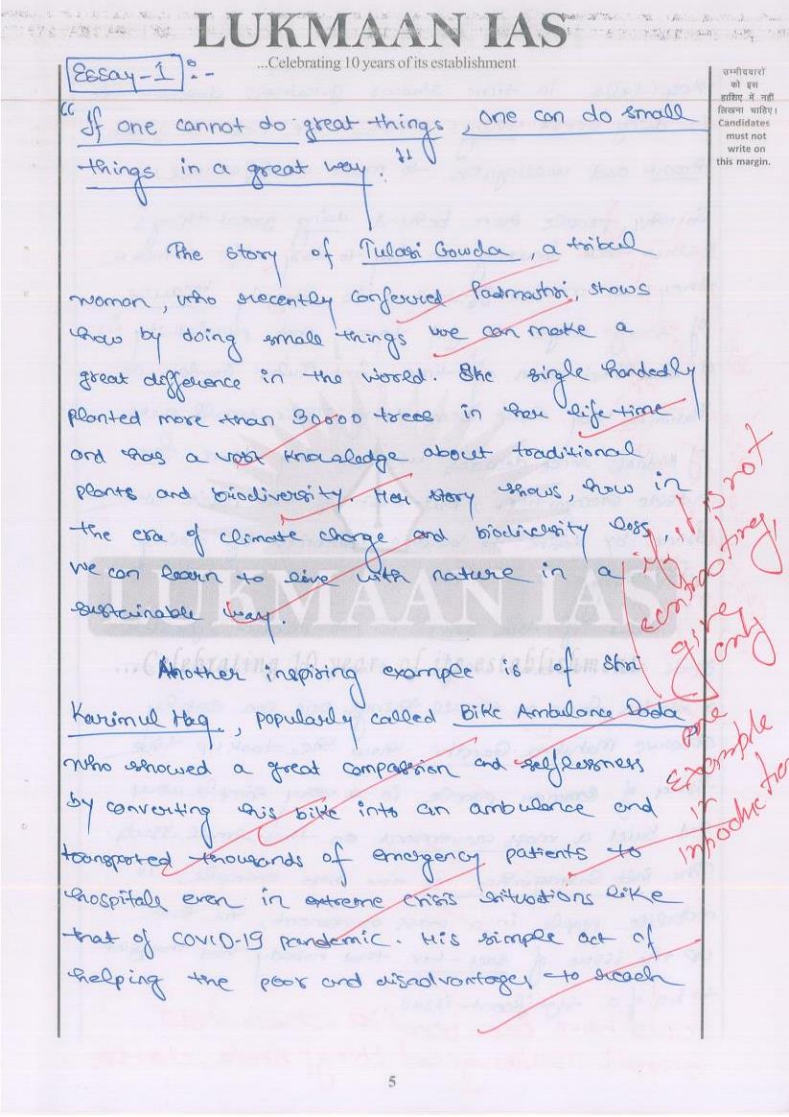 LUKMAAN IAS
...Celebrating 10 years of its establishment
उम्मीदवारों
को इस
हाशिए में नहीं
लिखना चाहिए।
Candidates
must not
write on
this margin.
Essay-1 :-
"If one cannot do great things, one can do small
things in a great way."
The story of Tulasi Gowda, a tribal
woman, who recently conferred Padmashri, shows
how by doing small things we can make a
great difference in the world. She single handedly
planted more than 30000 trees in her life time
and has a vast knowledge about traditional
plants and biodiversity. Her story shows, how in
the era of climate change and biodiversity loss,
we can learn to live with nature in a
sustainable way.
LUKMAAN IAS
...Celebrating 10 years of its establishment
Another inspiring example is of Shri
Karimul Haq, popularly called Bike Ambulance Dada
who showed a great compassion and selflessness
by converting his bike into an ambulance and
transported thousands of emergency patients to
hospitals even in extreme crisis situations like
that of COVID-19 pandemic. His simple act of
helping the poor and disadvantages to reach
if it is not
contrasting,
give
only
one
example
in
introduction
5